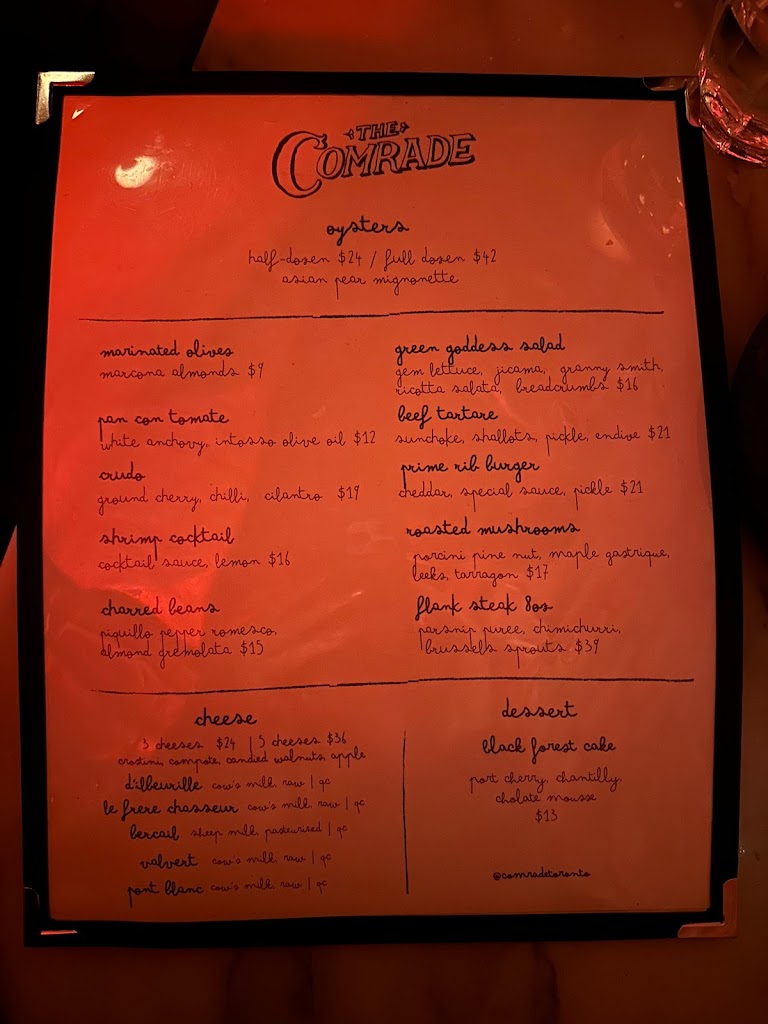 THE
COMRADE
oysters
half-dozen $24 / full dozen $42
asian pear mignonette
marinated olives
marcona almonds $9
pan con tomate
white anchovy, intosso olive oil $12
crudo
ground cherry, chilli, cilantro $19
shrimp cocktail
cocktail sauce, lemon $16
charred beans
piquillo pepper romesco,
almond gremolata $15
green goddess salad
gem lettuce, jicama, granny smith,
ricotta salata, breadcrumbs $16
beef tartare
sunchoke, shallots, pickle, endive $21
prime rib burger
cheddar, special sauce, pickle $21
roasted mushrooms
porcini pine nut, maple gastrique,
leeks, tarragon $17
flank steak 8oz
parsnip puree, chimichurri,
brussels sprouts $39
cheese
3 cheeses $24 | 5 cheeses $36
crostini, compote, candied walnuts, apple
d'illeurville cow's milk, raw | qc
le frere chasseur cow's milk, raw | qc
bercail sheep milk, pasteurized | qc
valvert cow's milk, raw | qc
pont blanc cow's milk, raw | qc
dessert
black forest cake
port cherry, chantilly,
cholate mousse
$13
@comradetoronto